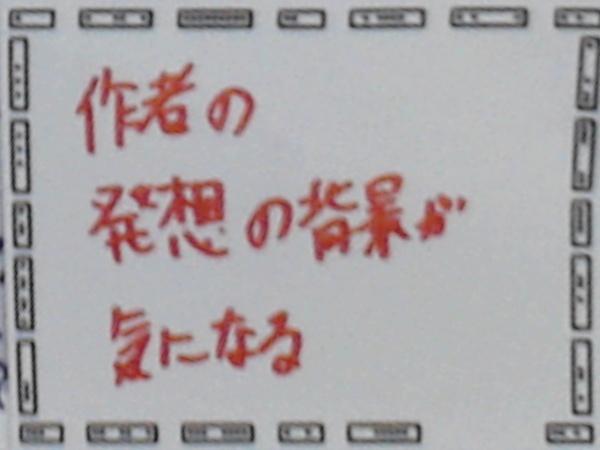 作者の
発想の背景が
気になる